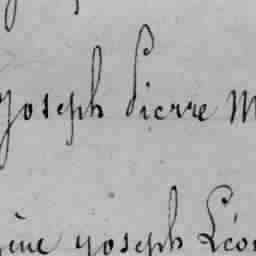 Joseph Pierre M
ène Joseph Léon